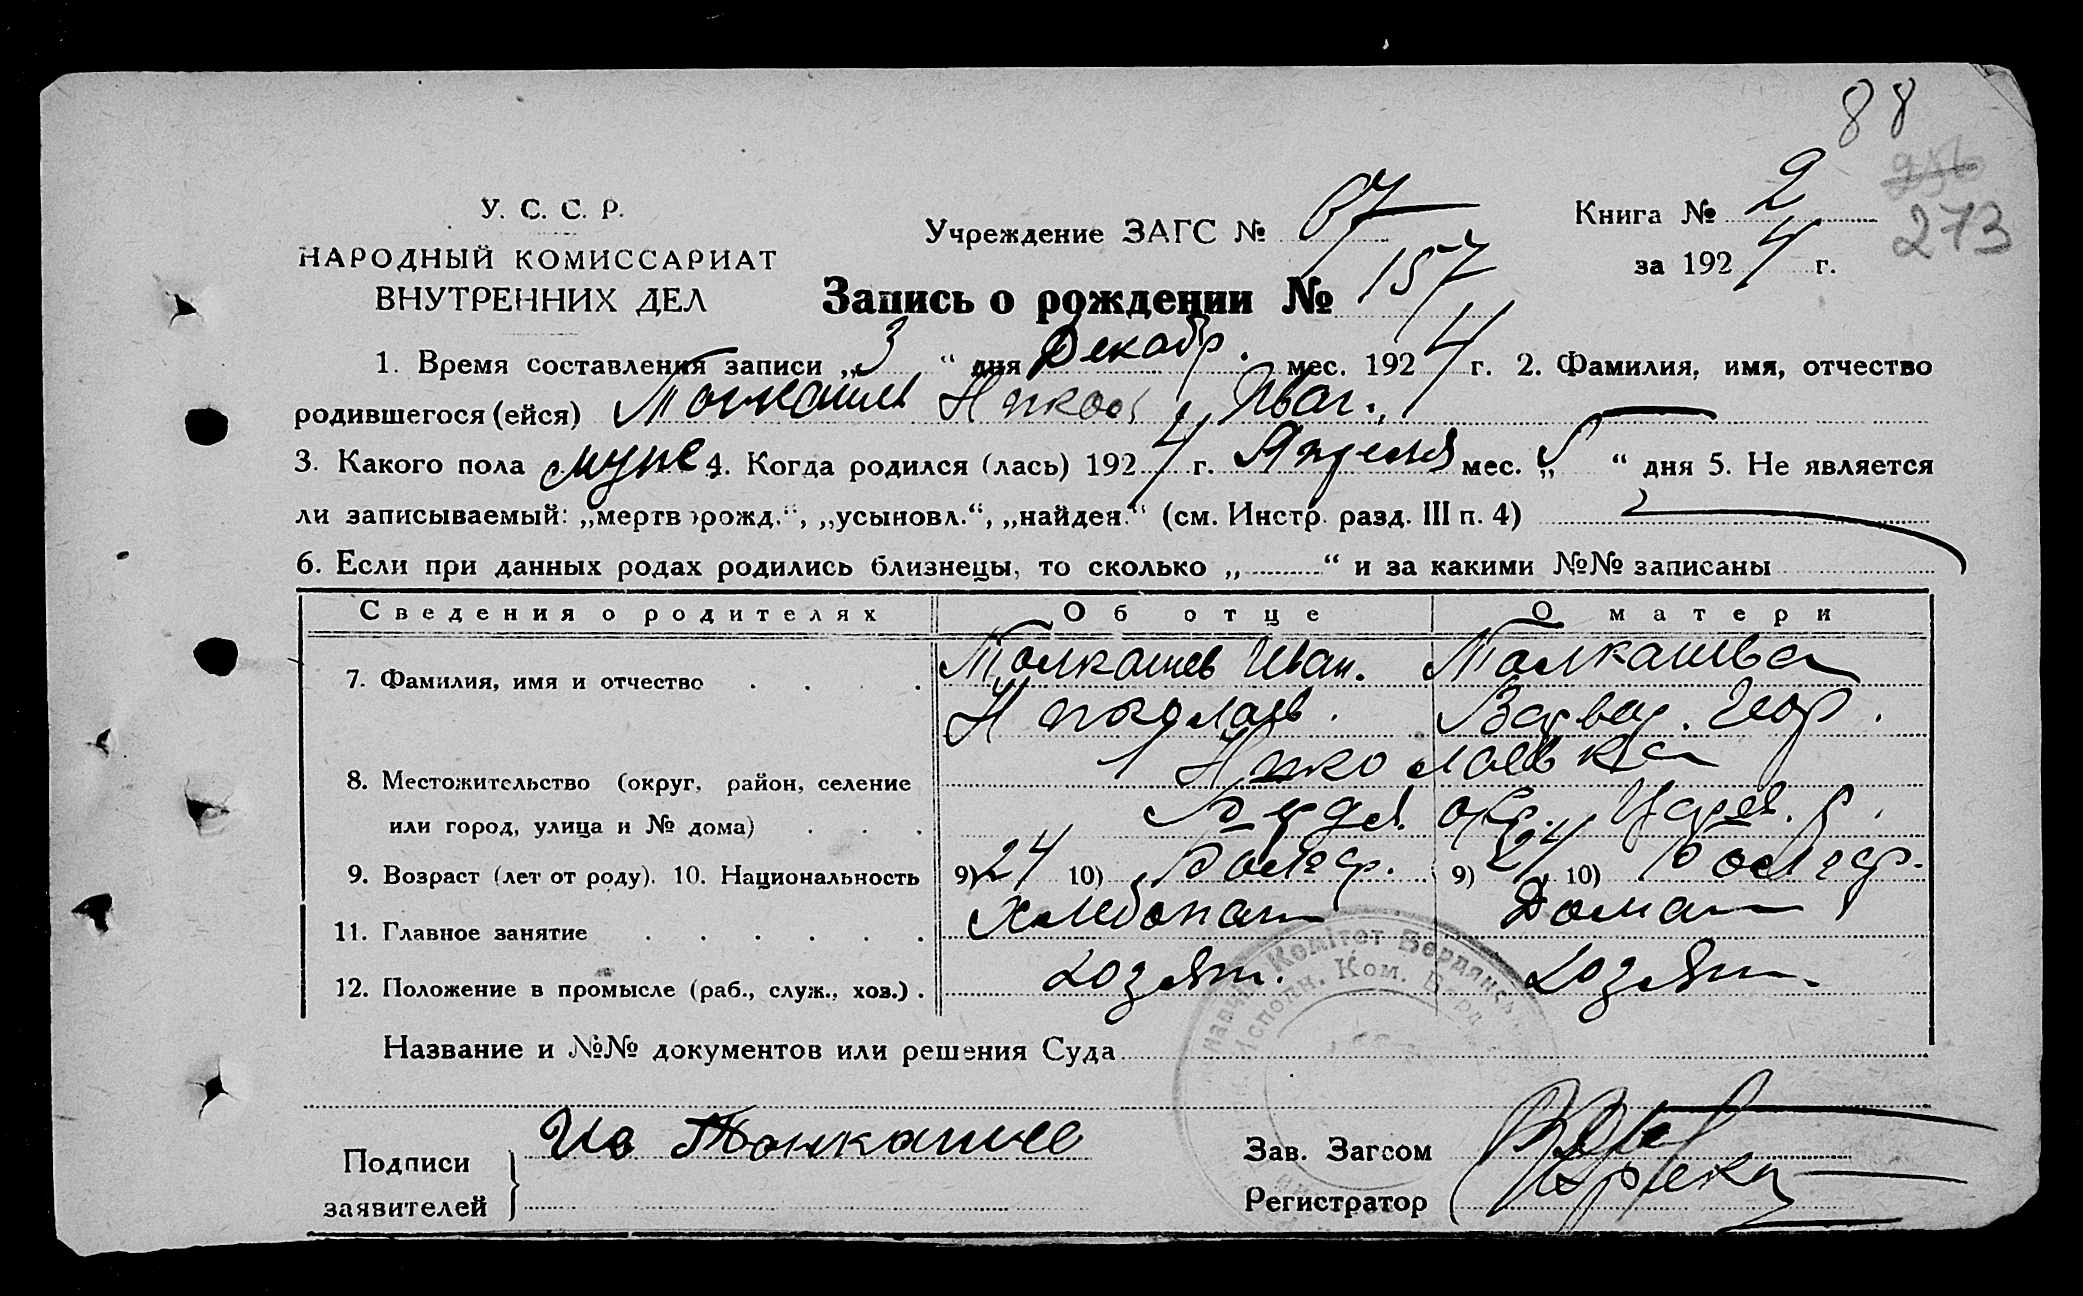 88
956
273
У. С. С. Р.
НАРОДНЫЙ КОМИССАРИАТ
ВНУТРЕННИХ ДЕЛ
Учреждение ЗАГС № 67
Книга № 2
за 1924 г.
Запись о рождении № 157
1. Время составления записи „3“ дня Декабр. мес. 1924 г. 2. Фамилия, имя, отчество
родившегося (ейся) Никол Иван.
3. Какого пола муже 4. Когда родился (лась) 1924 г. Апреля мес. „5“ дня 5. Не является
ли записываемый: „мертворожд.“, „усыновл.“, „найден.“ (см. Инстр. разд. III п. 4)
6. Если при данных родах родились близнецы, то сколько „ “ и за какими №№ записаны
Сведения о родителях Об отце О матери
7. Фамилия, имя и отчество Толкашев Иван. Толкашва
Николаев. Варвар. Геор.
8. Местожительство (округ, район, селение Николаевка
или город, улица и № дома) Берд. окр. Царев. р.
9. Возраст (лет от роду). 10. Национальность 9) 24 10) Болгар. 9) 24 10) Болгар.
11. Главное занятие Хлебопаш Домаш
12. Положение в промысле (раб., служ., хоз.) хозят. хозят.
Название и №№ документов или решения Суда
Комітет Бердянсь
Исполн. Ком. Берд
Подписи Ив Толкашев
заявителей
Зав. Загсом
Регистратор